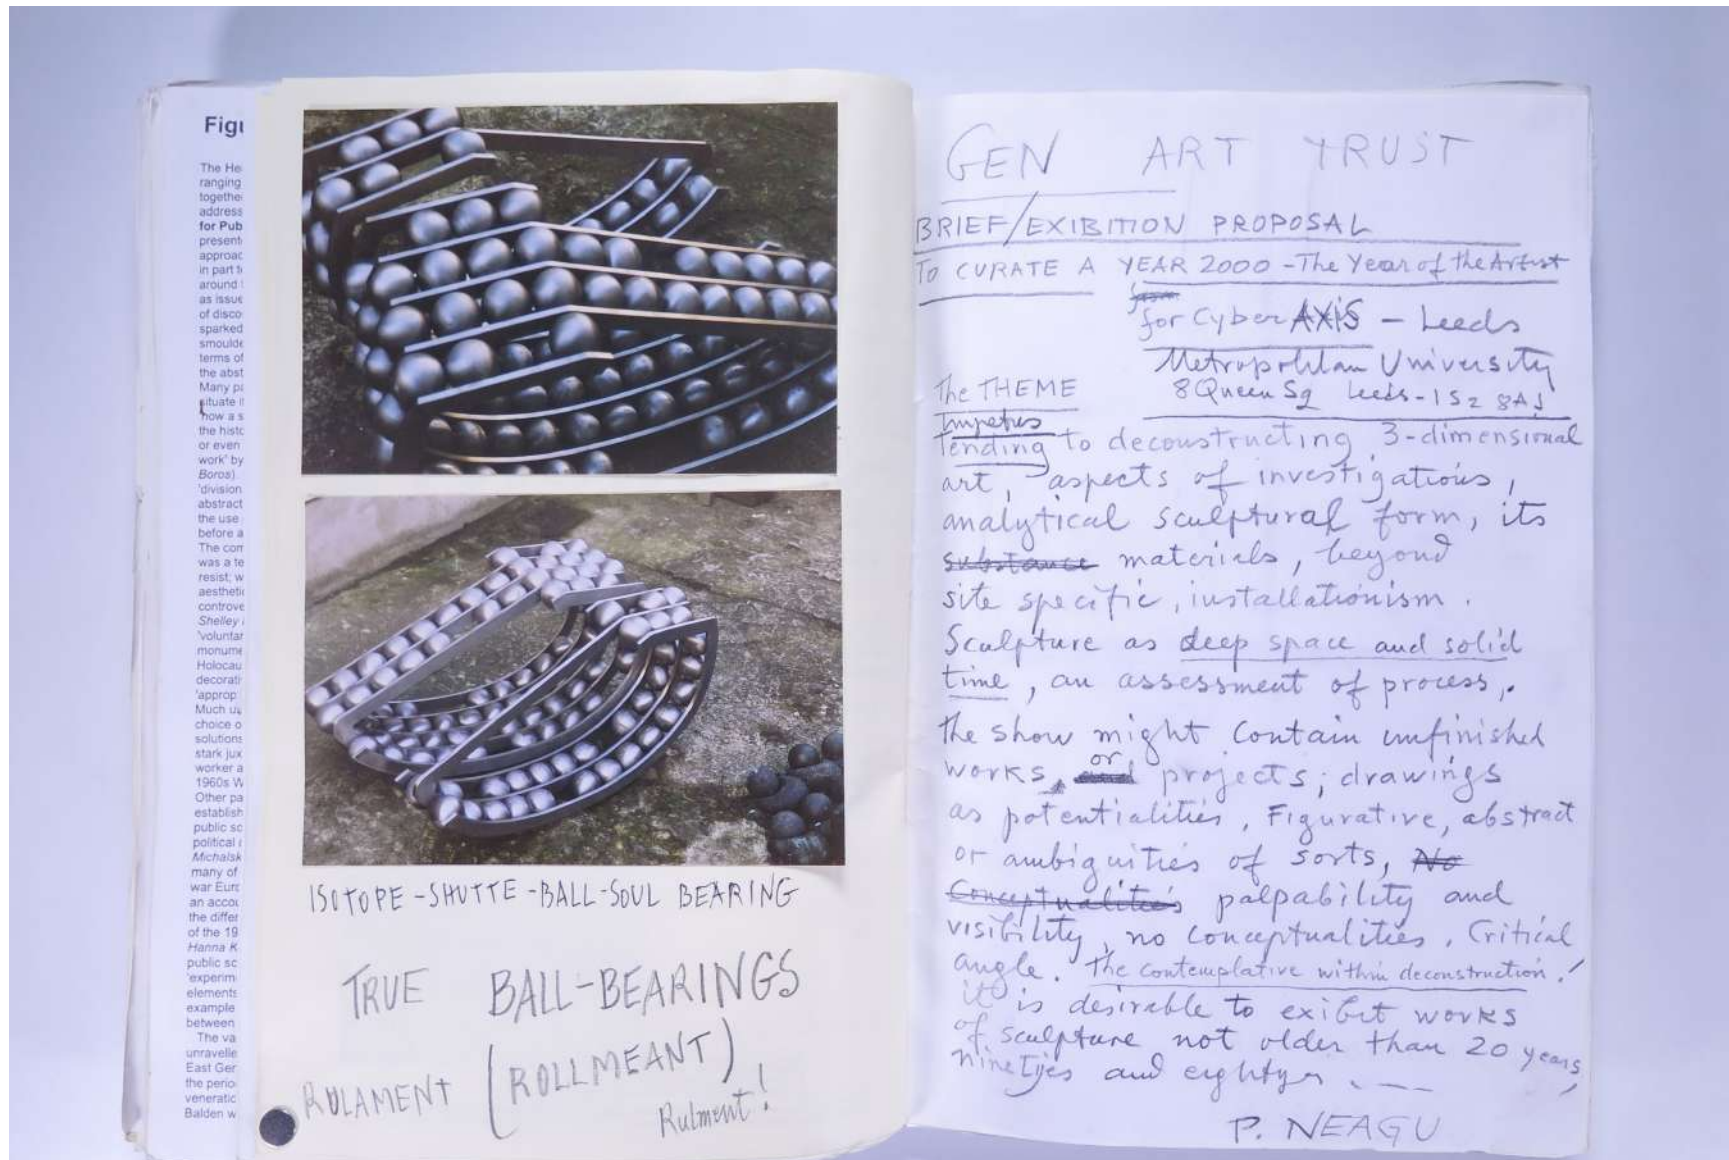 Figu
The He
ranging
togethe
address
for Pub
present
approac
in part t
around
as issue
of disco
sparked
smoulde
terms of
the abst
Many pa
situate i
how a s
the histo
or even
work' by
Boros)
'division
abstract
the use
before a
The com
was a te
resist; w
aestheti
controve
Shelley
'voluntar
monume
Holocau
decorati
'approp
Much u
choice o
solutions
stark jux
worker a
1960s W
Other pa
establish
public sc
political
Michalsk
many of
war Euro
an accou
the differ
of the 19
Hanna K
public sc
'experim
elements
example
between
The va
unravelle
East Ger
the perio
veneratic
Balden w
ISOTOPE-SHUTTE-BALL-SOUL BEARING
TRUE BALL-BEARINGS
RULAMENT (ROLLMEANT)
Rulment!
GEN ART TRUST
BRIEF/EXIBITION PROPOSAL
TO CURATE A YEAR 2000 - The Year of the Artist
for Cyber AXIS - Leeds
Metropolitan University
8 Queen Sq Leeds - 1S2 8AJ
The THEME
Impetus
Tending to deconstructing 3-dimensional
art, aspects of investigations,
analytical sculptural form, its
substance materials, beyond
site specific, installationism.
Sculpture as deep space and solid
time, an assessment of process,.
The show might contain unfinished
works, or projects; drawings
as potentialities, Figurative, abstract
or ambiguities of sorts, No
Conceptualities palpability and
visibility, no conceptualities, Critical
angle. The contemplative within deconstruction!
it is desirable to exibit works
of sculpture not older than 20 years,
ninetyes and eightys . --
P. NEAGU